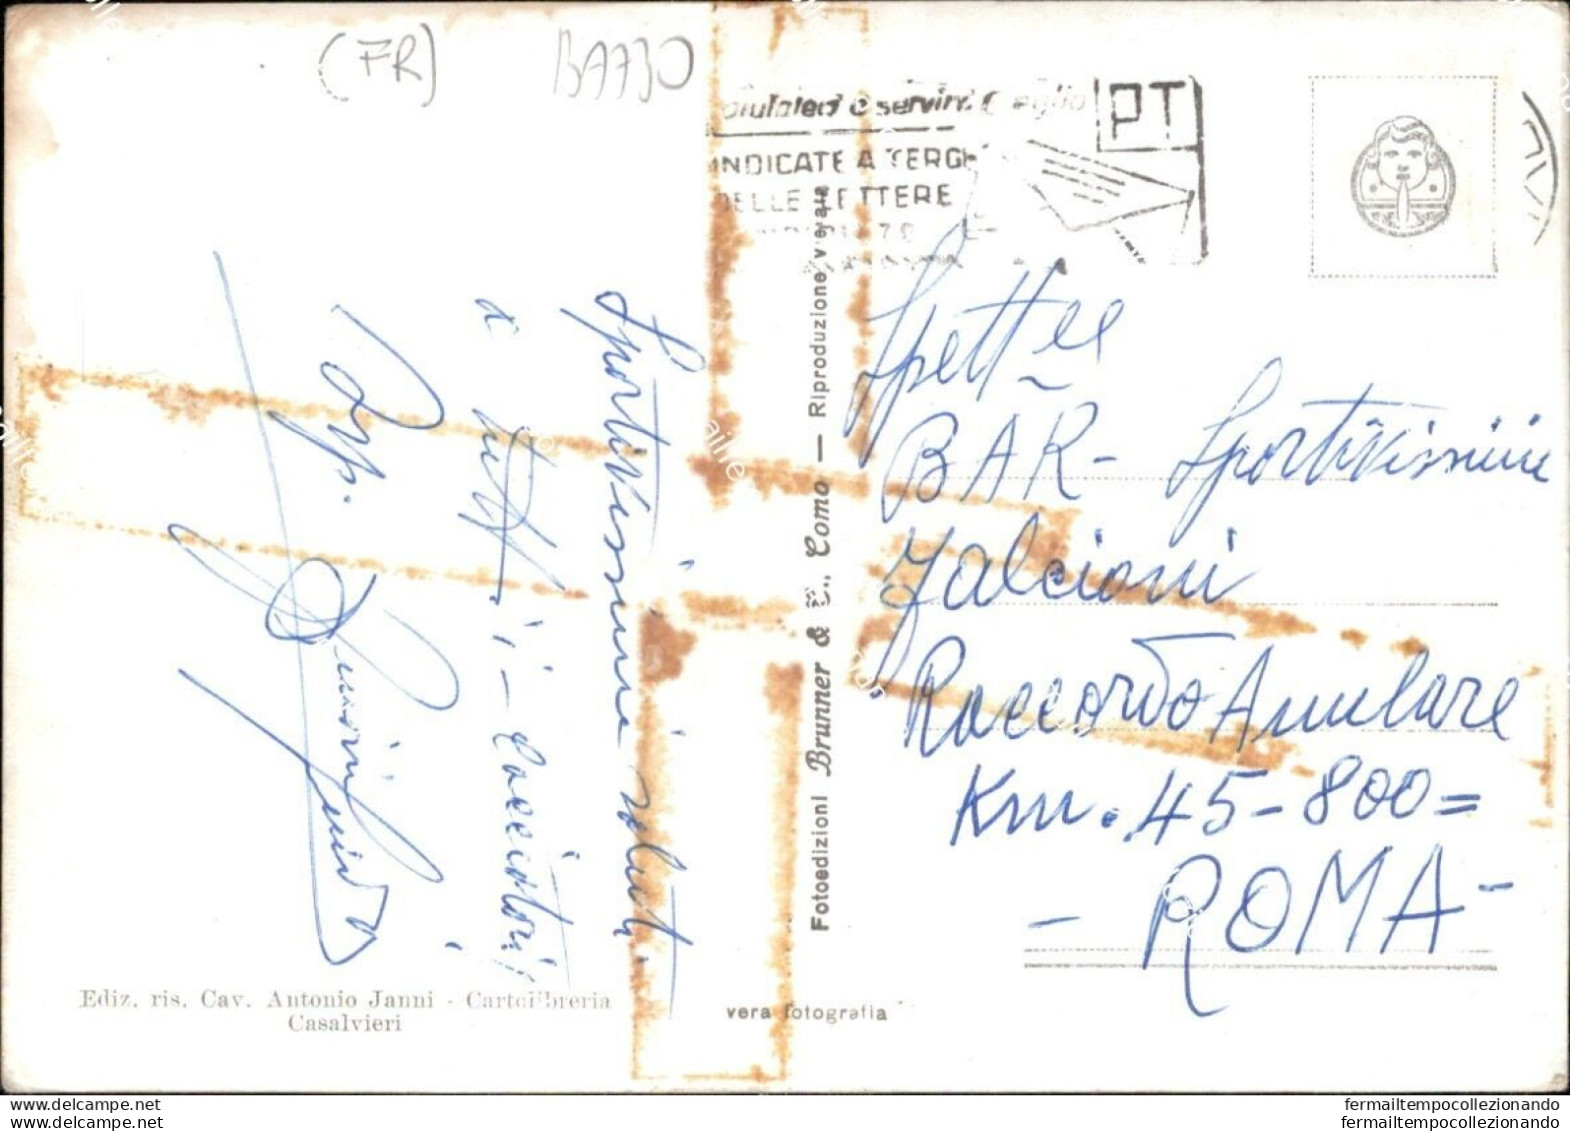 (FR)
BA730
PT
INDICATE A TERGO
DELLE LETTERE
Spett.le
BAR - Sportivissimi
Falcioni
Raccordo Anulare
Km. 45-800=
- ROMA -
Sportivissimi saluti
a tutti i cacciatori
Fotoedizioni Brunner & C., Como — Riproduzione vietata
Ediz. ris. Cav. Antonio Janni - Cartolibreria
Casalvieri
vera fotografia
www.delcampe.net
www.delcampe.net
fermailtempocollezionando
fermailtempocollezionando